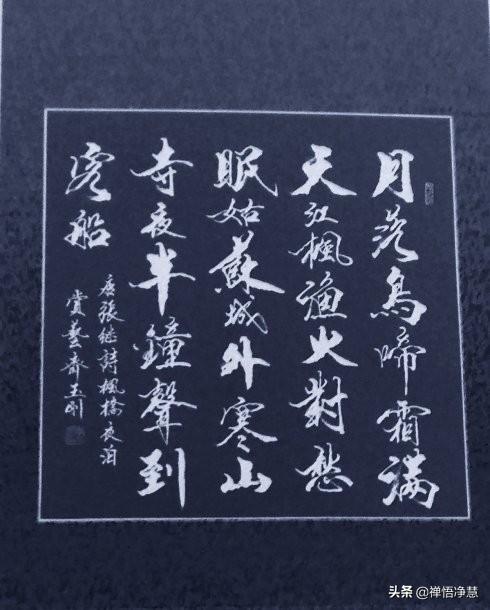 月落烏啼霜滿
天江楓漁火對愁
眠姑蘇城外寒山
寺夜半鐘聲到
客船
唐張继詩楓橋夜泊
賞藝齋王刚
头条 @禅悟净慧